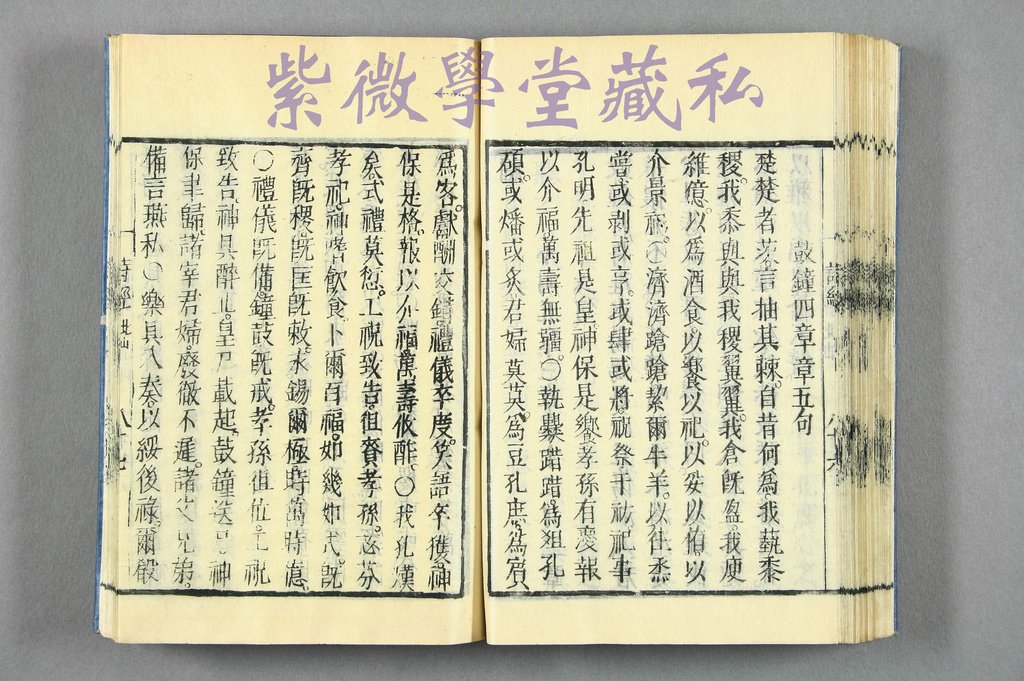 紫微學堂藏私
鼓鐘四章章五句
楚楚者茨。言抽其棘。自昔何爲。我蓺黍
稷。我黍與與。我稷翼翼。我倉旣盈。我庾
維億。以爲酒食。以饗以祀。以妥以侑。以
介景福。〇濟濟蹌蹌。絜爾牛羊。以往烝
嘗。或剥或亨。或肆或將。祝祭于祊。祀事
孔明。先祖是皇。神保是饗。孝孫有慶。報
以介福。萬壽無疆。〇執爨踖踖。爲俎孔
碩。或燔或炙。君婦莫莫。爲豆孔庶。爲賓
爲客。獻酬交錯。禮儀卒度。笑語卒獲。神
保是格。報以介福。萬壽攸酢。〇我孔熯
矣。式禮莫愆。工祝致告。徂賚孝孫。苾芬
孝祀。神嗜飲食。卜爾百福。如幾如式。旣
齊旣稷。旣匡旣敕。永錫爾極。時萬時億。
〇禮儀旣備。鐘鼓旣戒。孝孫徂位。工祝
致告。神具醉止。皇尸載起。鼓鐘送尸。神
保聿歸。諸宰君婦。廢徹不遲。諸父兄弟。
備言燕私。〇樂具入奏。以綏後祿。爾殽
詩經
八十七